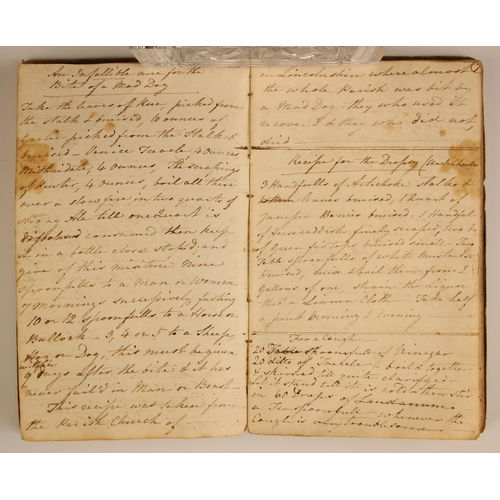 An Infallible cure for the
Bite of a Mad Dog
Take the leaves of Rue, picked from
the Stalk & bruised, 6 ounces of
Garlic picked from the Stalk &
bruised – Venice Treacle 4 ounces
Mithridate, 4 Ounces, the scrapings
of Pewter, 4 Ounces, boil all these
over a slow fire in two quarts of
strong Ale till one Quart is
consumed then keep
it in a bottle close stoped, and
give of this mixture Nine
Spoonfulls to a Man or Woman
7 Mornings successively fasting
10 or 12 spoonfulls to a Horse or
Bullock – 3, 4 or 5 to a Sheep,
Hog or Dog, this must be given
within
9 Days after the bite & it has
never fail'd in Man or Beast –
This recipe was taken from
the Parish Church of
in Lincolnshire where almost
the whole Parish was bit by
a Mad Dog – they who used it
recover'd & they who did not,
died
Recipe for the Dropsy
3 Handfulls of Artichoke Stalks &
leaves bruised, 1 Quart of
Juniper Berries bruised, 1 Handful
of Horseraddish finely scraped, two
of Green fir tops bruised small – Two
Table spoonfulls of white Mustard
bruised, mix & boil them from 2
Gallons of one, strain the Liquor
thro' a Linnen Cloth – Take half
a pint Morning & Evening
For a Cough
20 Table spoonfulls of Vinegar
20 ditto of Treacle – boil'd together
& skimmed till quite clear, then
let it stand till it is cold, then stir
in 60 Drops of Laudanum
a Teaspoonfull whenever the
Cough is very troublesome